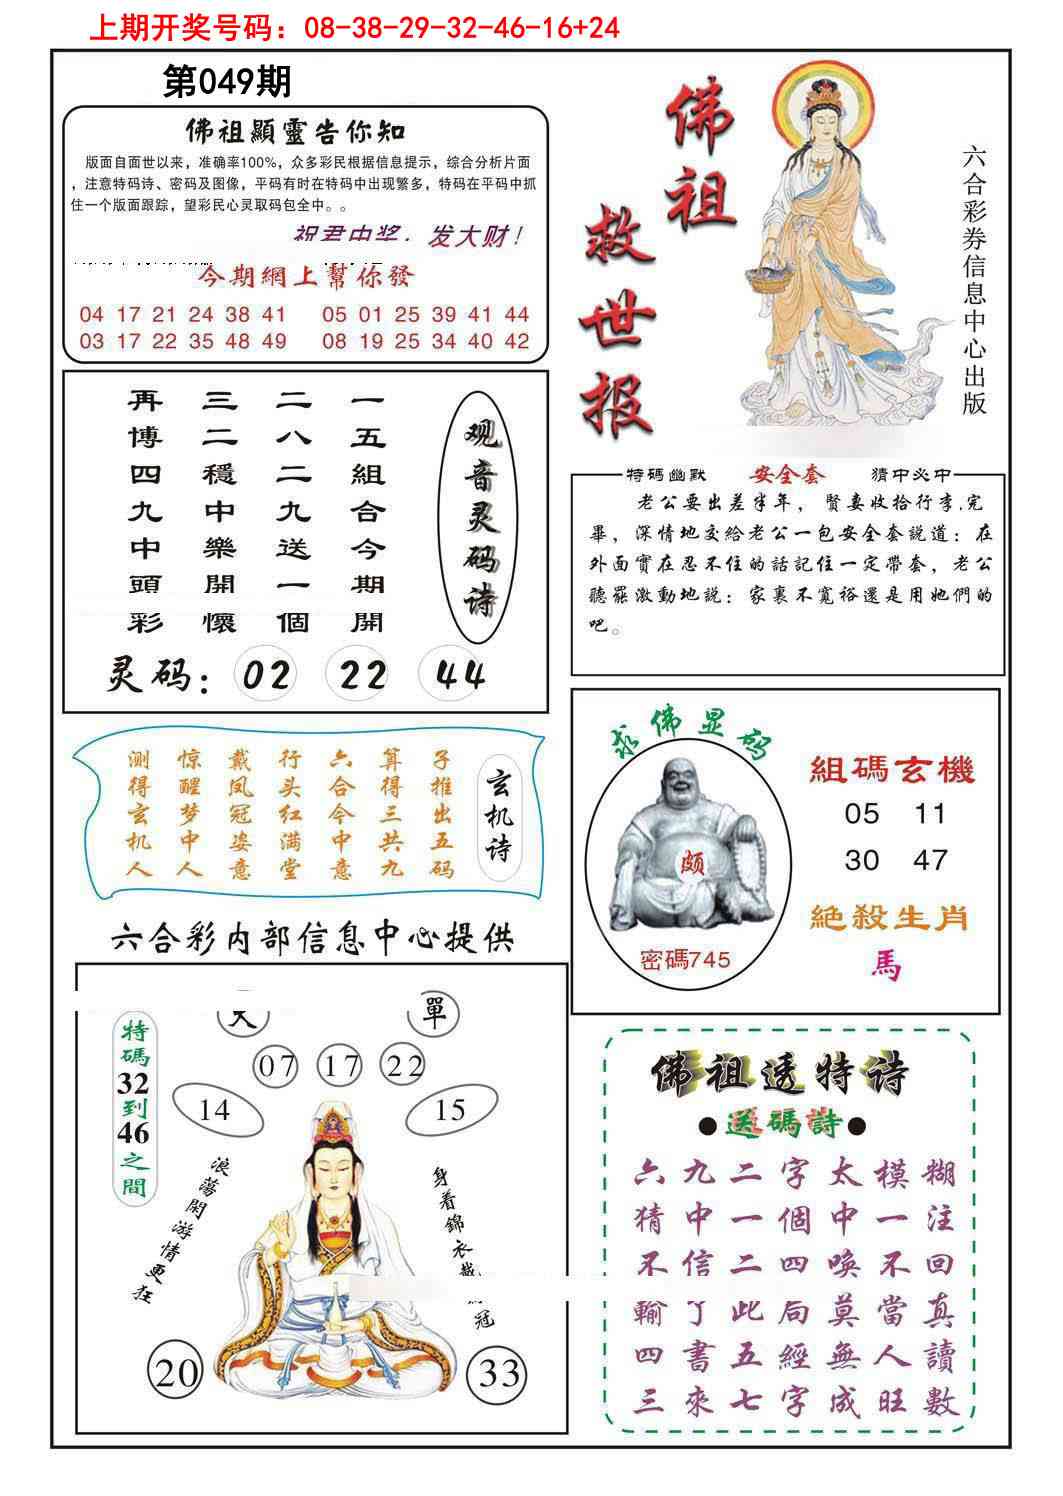 上期开奖号码：08-38-29-32-46-16+24
第049期
佛祖顯靈告你知
版面自面世以来，准确率100%，众多彩民根据信息提示，综合分析片面
，注意特码诗、密码及图像，平码有时在特码中出现繁多，特码在平码中抓
住一个版面跟踪，望彩民心灵取码包全中。。
祝君中奖，发大财！
今期網上幫你發
04 17 21 24 38 41 05 01 25 39 41 44
03 17 22 35 48 49 08 19 25 34 40 42
佛祖
救世报
六合彩券信息中心出版
观音灵码诗
一五組合今期開
二八二九送一個
三二穩中樂開懷
再博四九中頭彩
灵码：02 22 44
特碼幽默 安全套 猜中必中
老公要出差半年，賢妻收拾行李.完
畢，深情地交給老公一包安全套説道：在
外面實在忍不住的話記住一定帶套，老公
聽罷激動地説：家裏不寬裕還是用她們的
吧。
玄机诗
子推出五码
算得三共九
六合今中意
行头红满堂
戴凤冠姿意
惊醒梦中人
测得玄机人
求佛显码
颇
密碼745
組碼玄機
05 11
30 47
絕殺生肖
馬
六合彩内部信息中心提供
單
07 17 22
14 15
特碼32到46之間
浪蕩閑游情更狂
身着錦衣戴 冠
20 33
佛祖透特诗
●送碼詩●
六九二字太模糊
猜中一個中一注
不信二四喚不回
輸了此局莫當真
四書五經無人讀
三來七字成旺數